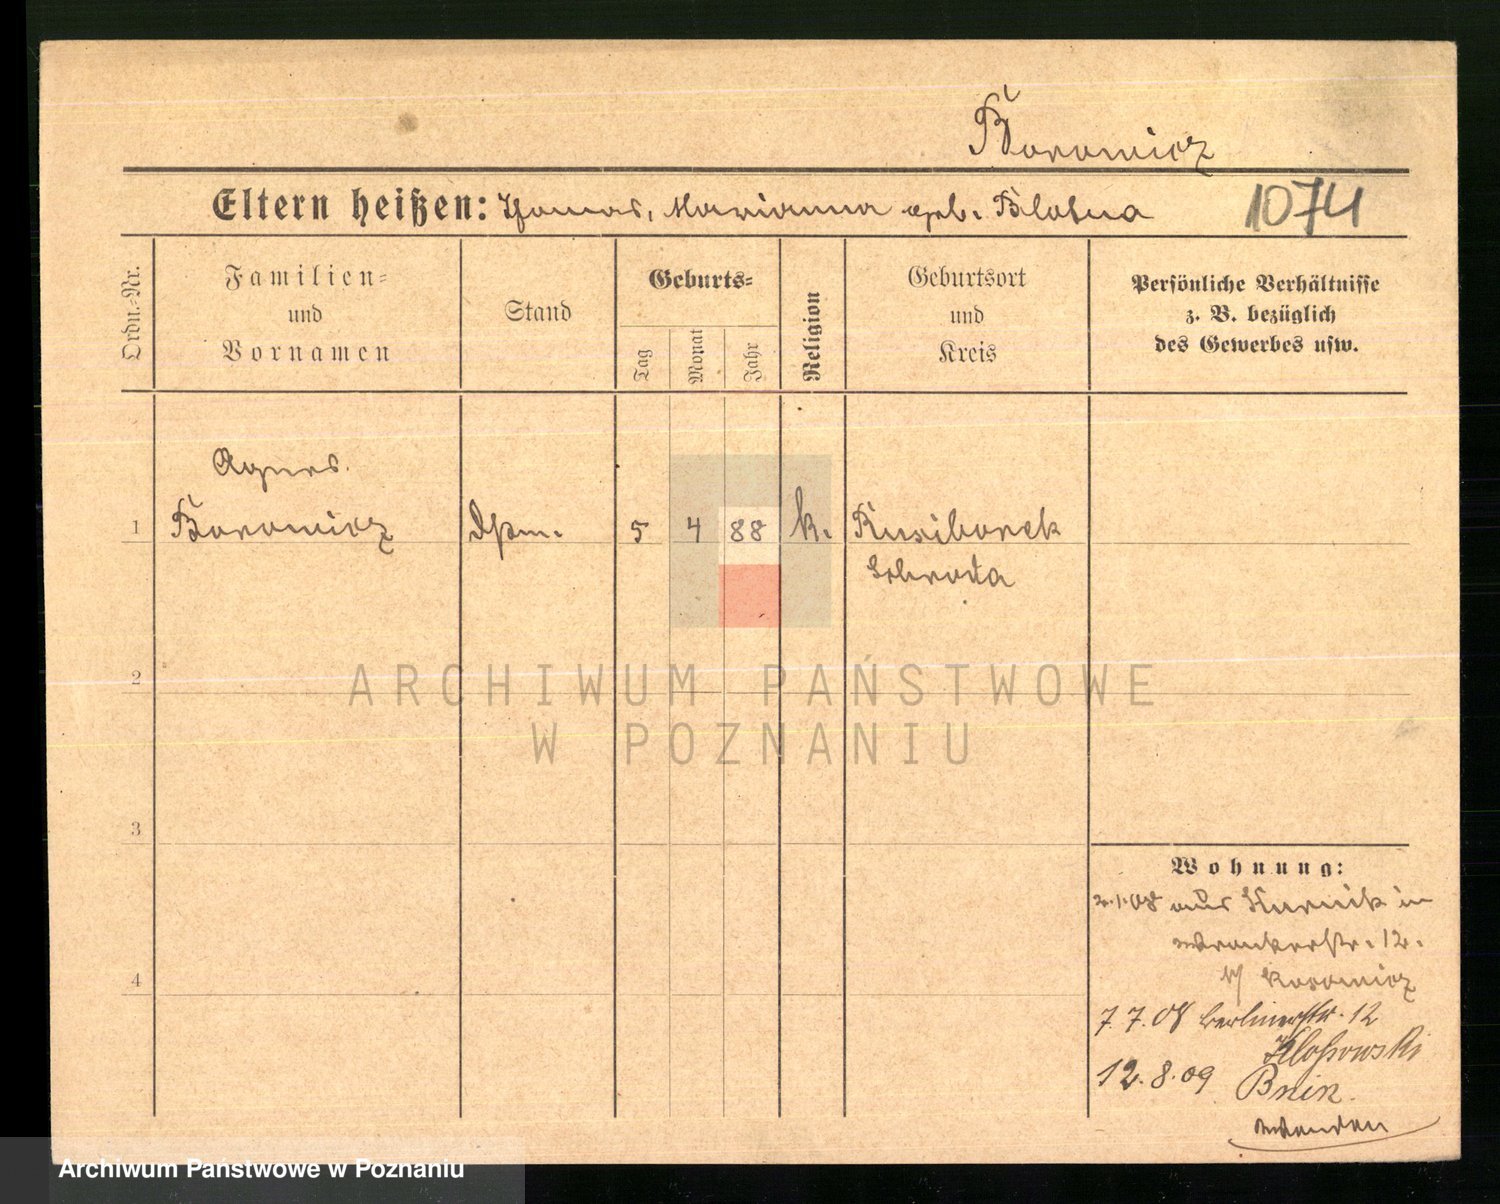 Borowicz
Eltern heißen: Thomas, Marianna geb. Blotna
1074
Ordn.-Nr.
Familien-
und
Vornamen
Stand
Geburts-
Tag
Monat
Jahr
Religion
Geburtsort
und
Kreis
Persönliche Verhältnisse
z. B. bezüglich
des Gewerbes usw.
Agnes.
1 Borowicz 5 4 88 k. Rusiborek
Schroda
2
3
4
Wohnung:
2.1.08 aus Kurnik in
12.
b/ Borowicz
7.7.08 Berlinerstr. 12
Klossowski
12.8.09 Bnin
ARCHIWUM PAŃSTWOWE
W POZNANIU
Archiwum Państwowe w Poznaniu